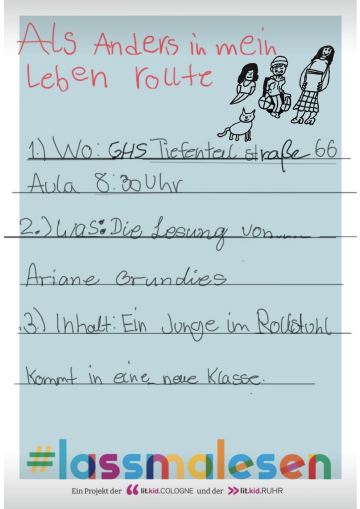 Als Anders in mein
Leben rollte
1.) Wo: GHS Tiefentalstraße 66
Aula 8:30 Uhr
2.) Was: Die Lesung von......
Ariane Grundies
3.) Inhalt: Ein Junge im Rollstuhl
Kommt in eine neue Klasse.
#lassmalesen
Ein Projekt der lit.kid.COLOGNE und der lit.kid.RUHR